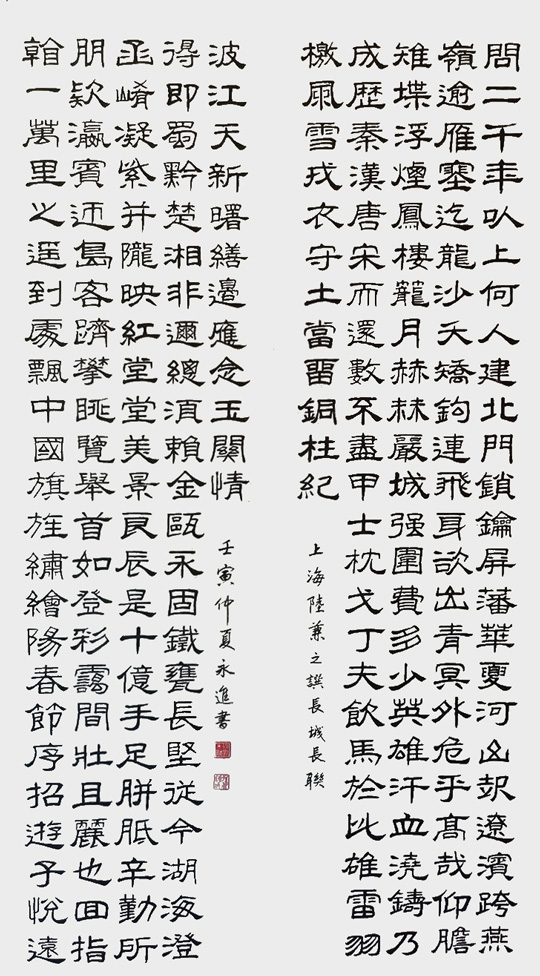 問二千年以上何人建北門鎖鑰屏藩華夏河山遼濱跨燕
嶺逾雁塞迄龍沙夭矯鈎連飛身欲出青冥外危乎高哉仰瞻
雉堞浮煙鳳樓籠月赫赫嚴城强圉費多少英雄汗血澆鑄乃
成歷秦漢唐宋而還數不盡甲士枕戈丁夫飲馬於此雄雷羽
檄風雪戎衣守土當留銅柱紀
上海陸兼之譔長城長聯
一萬里之遥到處飄中國旗旌繡繪陽春節序招遊子悦遠
朋欵瀛賓迓島客躋攀眺覽舉首如登彩靄間壯且麗也回指
函崤凝紫并隴映紅堂堂美景良辰是十億手足胼胝辛勤所
得即蜀黔楚湘非邇總須賴金甌永固鐵甕長堅從今湖海澄
波江天新曙繕邊應念玉關情
壬寅仲夏永進書